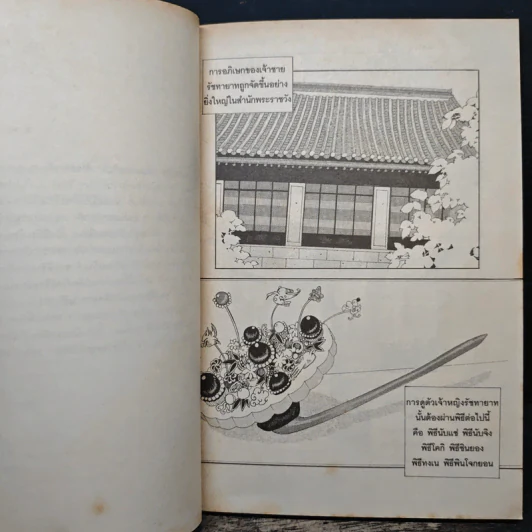 การอภิเษกของเจ้าชาย
รัชทายาทถูกจัดขึ้นอย่าง
ยิ่งใหญ่ในสำนักพระราชวัง
การดูตัวเจ้าหญิงรัชทายาท
นั้นต้องผ่านพิธีต่อไปนี้
คือ พิธีนับแช่ พิธีนับจิง
พิธีโคกิ พิธีชินยอง
พิธีทงเน พิธีพินโจกยอน